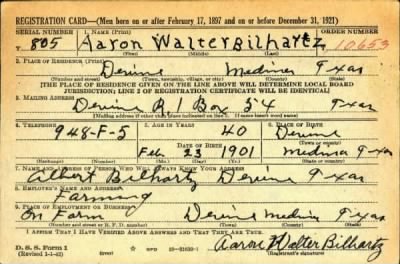 REGISTRATION CARD—(Men born on or after February 17, 1897 and on or before December 31, 1921)
SERIAL NUMBER 1. NAME (Print) ORDER NUMBER
T 805 Aaron Walter Bilhartz 10653
2. PLACE OF RESIDENCE (Print)
Devine Medina Texas
(Number and street) (Town, township, village, or city) (County) (State)
[THE PLACE OF RESIDENCE GIVEN ON THE LINE ABOVE WILL DETERMINE LOCAL BOARD
JURISDICTION; LINE 2 OF REGISTRATION CERTIFICATE WILL BE IDENTICAL]
3. MAILING ADDRESS
Devine R 1 Box 54 Texas
(Mailing address if other than place indicated on line 2. If same insert word same)
4. TELEPHONE 5. AGE IN YEARS 6. PLACE OF BIRTH
948-F-5 40 Devine
DATE OF BIRTH (Town or county)
Feb 23 1901 Medina Texas
(Exchange) (Number) (Mo.) (Day) (Yr.) (State or country)
7. NAME AND ADDRESS OF PERSON WHO WILL ALWAYS KNOW YOUR ADDRESS
Albert Bilhartz Devine Texas
8. EMPLOYER'S NAME AND ADDRESS
Farming
9. PLACE OF EMPLOYMENT OR BUSINESS
On Farm Devine Medina Texas
(Number and street or R. F. D. number) (Town) (County) (State)
I AFFIRM THAT I HAVE VERIFIED ABOVE ANSWERS AND THAT THEY ARE TRUE.
D. S. S. Form 1 Aaron Walter Bilhartz
(Revised 1-1-42) (Registrant's signature)